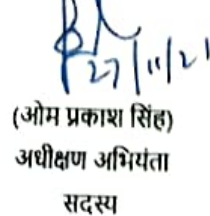 27/11/21
(ओम प्रकाश सिंह)
अधीक्षण अभियंता
सदस्य